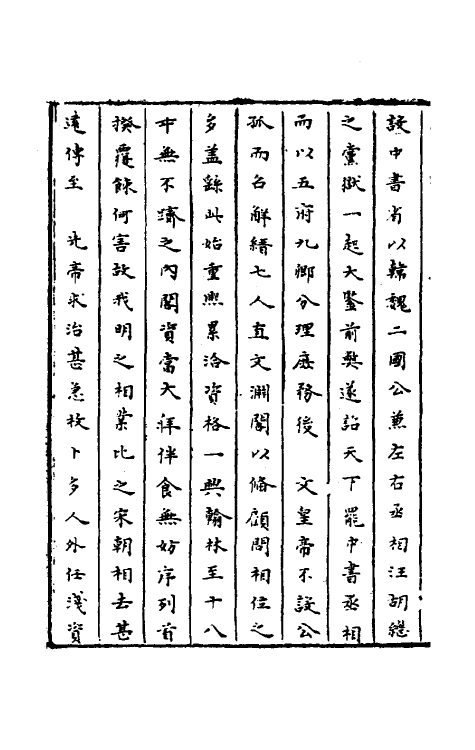 設中書省以韓魏二國公兼左右丞相汪胡繼
之黨獄一起大鑒前弊遂詔天下罷中書丞相
而以五府九卿分理庶務後　文皇帝不設公
孤而名解縉七人直文淵閣以備顧問相位之
多蓋繇此始重熙累洽資格一興翰林至十八
中無不濟之內閣資當大拜伴食無妨序列首
揆覆餗何害故我明之相業比之宋朝相去甚
遠傳至　先帝求治甚急枚卜多人外任淺資